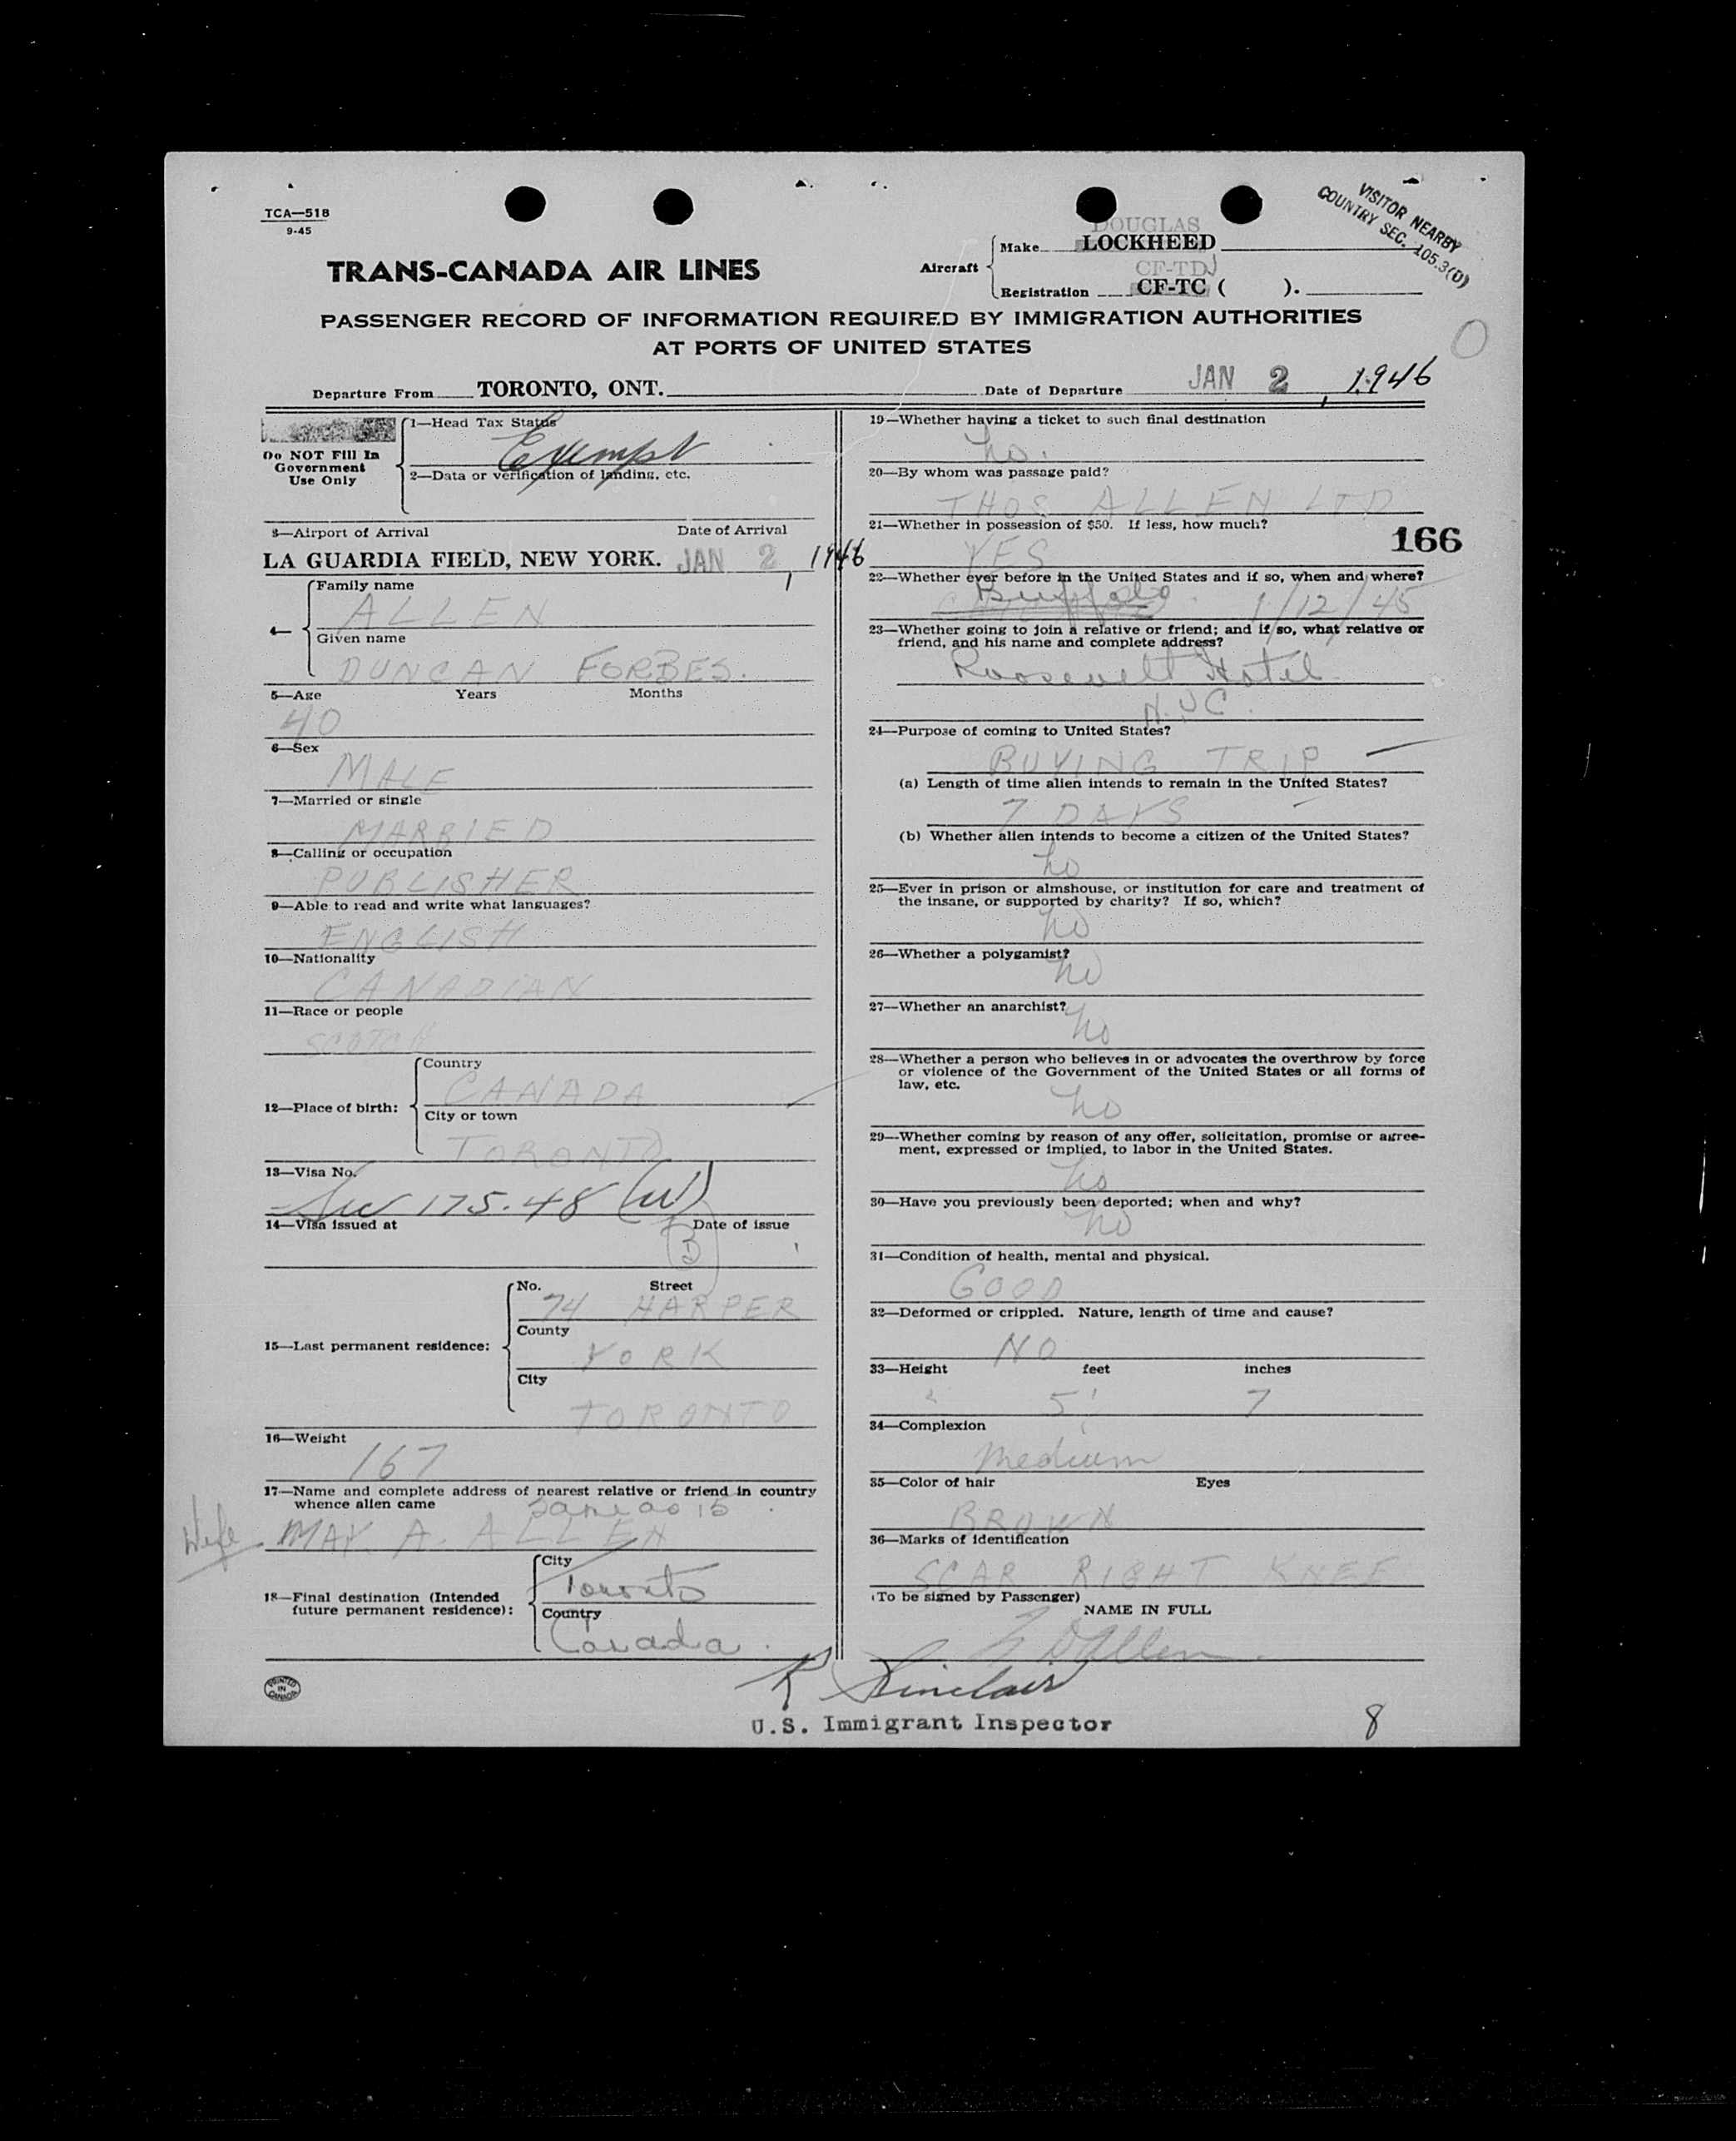 TCA—518
9-45
VISITOR NEARBY
COUNTRY SEC. 105.3(D)
TRANS-CANADA AIR LINES
Aircraft
DOUGLAS
Make LOCKHEED
CF-TDJ
Registration CF-TC ( ).
PASSENGER RECORD OF INFORMATION REQUIRED BY IMMIGRATION AUTHORITIES
AT PORTS OF UNITED STATES
Departure From TORONTO, ONT. Date of Departure JAN 2, 1946
Do NOT Fill In
Government
Use Only
1—Head Tax Status
Exempt
2—Data or verification of landing, etc.
3—Airport of Arrival Date of Arrival
LA GUARDIA FIELD, NEW YORK. JAN 2, 1946
4— Family name
ALLEN
Given name
DUNCAN FORBES.
5—Age Years Months
40
6—Sex
MALE
7—Married or single
MARRIED
8—Calling or occupation
PUBLISHER
9—Able to read and write what languages?
ENGLISH
10—Nationality
CANADIAN
11—Race or people
SCOTCH
12—Place of birth: Country
CANADA
City or town
TORONTO
13—Visa No.
Sec 175.48 (W)
14—Visa issued at Date of issue
(3)
15—Last permanent residence: No. Street
74 HARPER
County
YORK
City
TORONTO
16—Weight
167
17—Name and complete address of nearest relative or friend in country
whence alien came
Same as 15
Wife MAY. A. ALLEN
18—Final destination (Intended
future permanent residence):
City
Toronto
Country
Canada.
19—Whether having a ticket to such final destination
no.
20—By whom was passage paid?
THOS ALLEN LTD
21—Whether in possession of $50. If less, how much?
166
YES
22—Whether ever before in the United States and if so, when and where?
Buffalo 1/12/45
23—Whether going to join a relative or friend; and if so, what relative or
friend, and his name and complete address?
Roosevelt Hotel
N.Y.C.
24—Purpose of coming to United States?
BUYING TRIP
(a) Length of time alien intends to remain in the United States?
7 DAYS
(b) Whether alien intends to become a citizen of the United States?
no
25—Ever in prison or almshouse, or institution for care and treatment of
the insane, or supported by charity? If so, which?
no
26—Whether a polygamist?
no
27—Whether an anarchist?
no
28—Whether a person who believes in or advocates the overthrow by force
or violence of the Government of the United States or all forms of
law, etc.
no
29—Whether coming by reason of any offer, solicitation, promise or agree-
ment, expressed or implied, to labor in the United States.
no
30—Have you previously been deported; when and why?
no
31—Condition of health, mental and physical.
GOOD
32—Deformed or crippled. Nature, length of time and cause?
NO
33—Height feet inches
5' 7
34—Complexion
Medium
35—Color of hair Eyes
BROWN
36—Marks of identification
SCAR RIGHT KNEE
(To be signed by Passenger)
NAME IN FULL
D Allen
R Sinclair
U.S. Immigrant Inspector
PRINTED
IN
CANADA
8